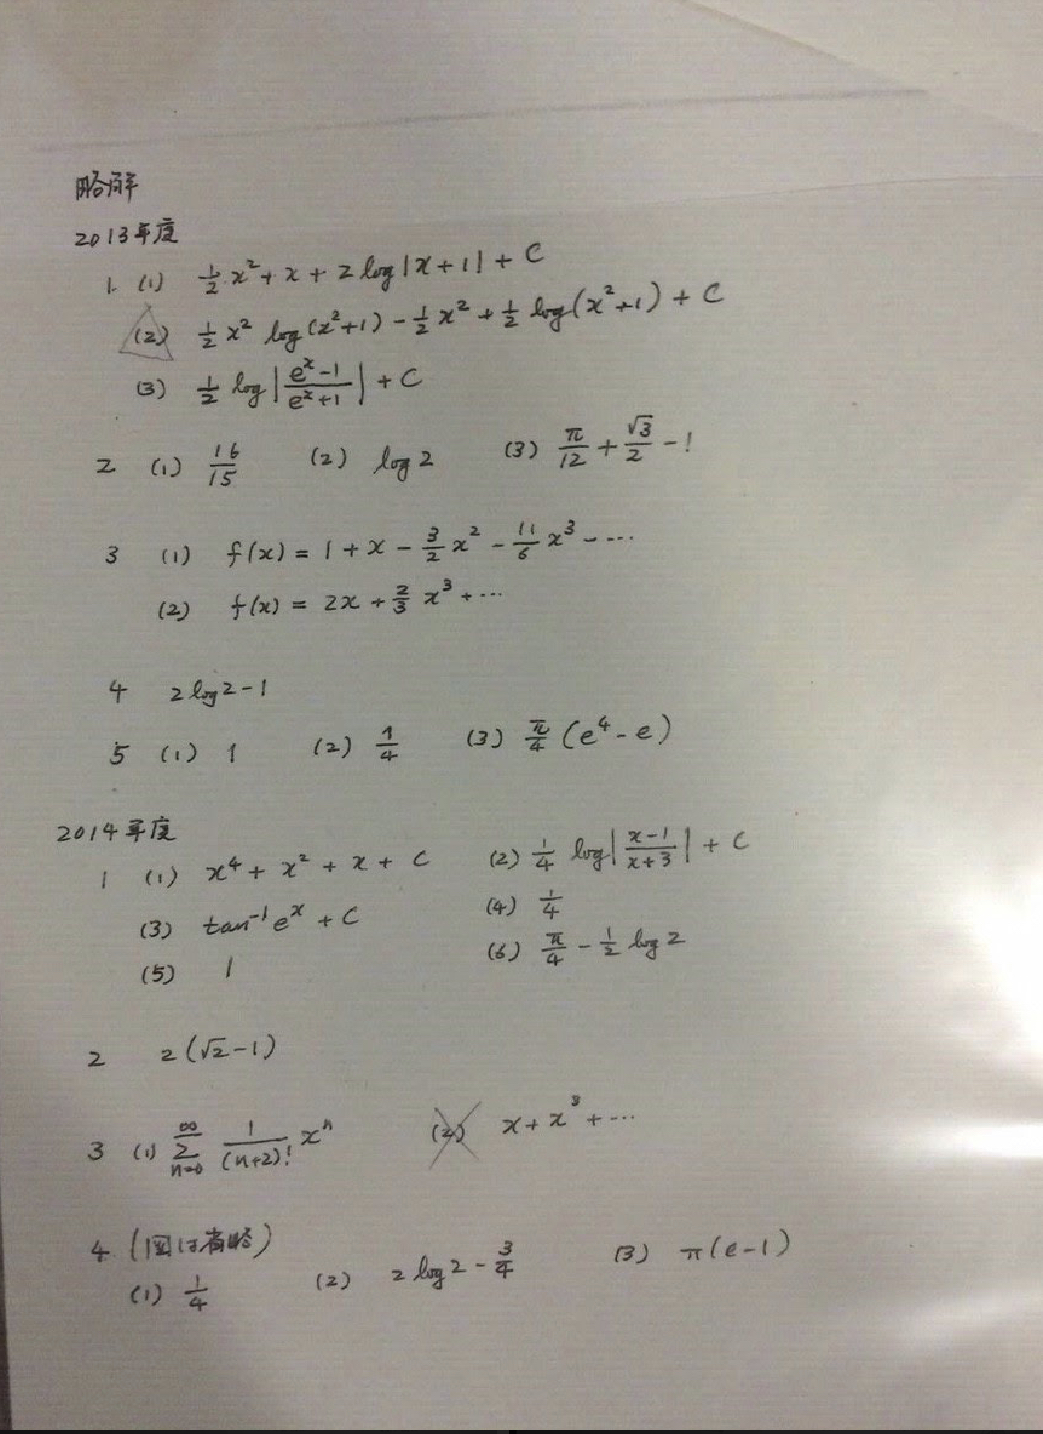 略解
2013年度
1. (1) 1/2 x² + x + 2 log|x+1| + C
(2) 1/2 x² log(x²+1) - 1/2 x² + 1/2 log(x²+1) + C
(3) 1/2 log|(eˣ-1)/(eˣ+1)| + C
2 (1) 16/15 (2) log 2 (3) π/12 + √3/2 - 1
3 (1) f(x) = 1 + x - 3/2 x² - 11/6 x³ - ....
(2) f(x) = 2x + 2/3 x³ + ...
4 2 log 2 - 1
5 (1) 1 (2) 1/4 (3) π/4 (e⁴ - e)
2014年度
1 (1) x⁴ + x² + x + C (2) 1/4 log|(x-1)/(x+3)| + C
(3) tan⁻¹ eˣ + C (4) 1/4
(5) 1 (6) π/4 - 1/2 log 2
2 2(√2 - 1)
3 (1) ∑_{n=0}^{∞} 1/(n+2)! xⁿ (2) x + x³ + ...
4 (図は省略)
(1) 1/4 (2) 2 log 2 - 3/4 (3) π(e-1)